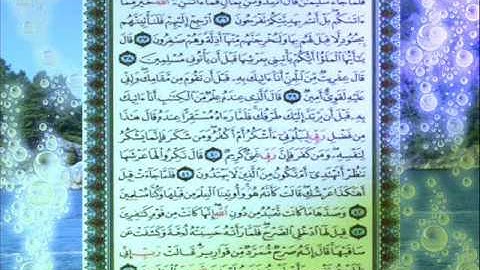 فَلَمَّا جَآءَ سُلَيْمَٰنَ قَالَ أَتُمِدُّونَنِ بِمَالٍ فَمَآ ءَاتَىٰنِۦَ ٱللَّهُ خَيْرٌ مِّمَّآ
ءَاتَىٰكُم بَلْ أَنتُم بِهَدِيَّتِكُمْ تَفْرَحُونَ ٣٦ ٱرْجِعْ إِلَيْهِمْ فَلَنَأْتِيَنَّهُم
بِجُنُودٍ لَّا قِبَلَ لَهُم بِهَا وَلَنُخْرِجَنَّهُم مِّنْهَآ أَذِلَّةً وَهُمْ صَٰغِرُونَ ٣٧ قَالَ
يَٰٓأَيُّهَا ٱلْمَلَؤُا۟ أَيُّكُمْ يَأْتِينِى بِعَرْشِهَا قَبْلَ أَن يَأْتُونِى مُسْلِمِينَ ٣٨
قَالَ عِفْرِيتٌ مِّنَ ٱلْجِنِّ أَنَا۠ ءَاتِيكَ بِهِۦ قَبْلَ أَن تَقُومَ مِن مَّقَامِكَ وَإِنِّى
عَلَيْهِ لَقَوِىٌّ أَمِينٌ ٣٩ قَالَ ٱلَّذِى عِندَهُۥ عِلْمٌ مِّنَ ٱلْكِتَٰبِ أَنَا۠ ءَاتِيكَ
بِهِۦ قَبْلَ أَن يَرْتَدَّ إِلَيْكَ طَرْفُكَ فَلَمَّا رَءَاهُ مُسْتَقِرًّا عِندَهُۥ قَالَ هَٰذَا
مِن فَضْلِ رَبِّى لِيَبْلُوَنِىٓ ءَأَشْكُرُ أَمْ أَكْفُرُ وَمَن شَكَرَ فَإِنَّمَا يَشْكُرُ
لِنَفْسِهِۦ وَمَن كَفَرَ فَإِنَّ رَبِّى غَنِىٌّ كَرِيمٌ ٤٠ قَالَ نَكِّرُوا۟ لَهَا عَرْشَهَا
نَنظُرْ أَتَهْتَدِىٓ أَمْ تَكُونُ مِنَ ٱلَّذِينَ لَا يَهْتَدُونَ ٤١ فَلَمَّا جَآءَتْ قِيلَ
أَهَٰكَذَا عَرْشُكِ قَالَتْ كَأَنَّهُۥ هُوَ وَأُوتِينَا ٱلْعِلْمَ مِن قَبْلِهَا وَكُنَّا مُسْلِمِينَ
٤٢ وَصَدَّهَا مَا كَانَت تَّعْبُدُ مِن دُونِ ٱللَّهِ إِنَّهَا كَانَتْ مِن قَوْمٍ كَٰفِرِينَ
٤٣ قِيلَ لَهَا ٱدْخُلِى ٱلصَّرْحَ فَلَمَّا رَأَتْهُ حَسِبَتْهُ لُجَّةً وَكَشَفَتْ عَن
سَاقَيْهَا قَالَ إِنَّهُۥ صَرْحٌ مُّمَرَّدٌ مِّن قَوَارِيرَ قَالَتْ رَبِّ إِنِّى